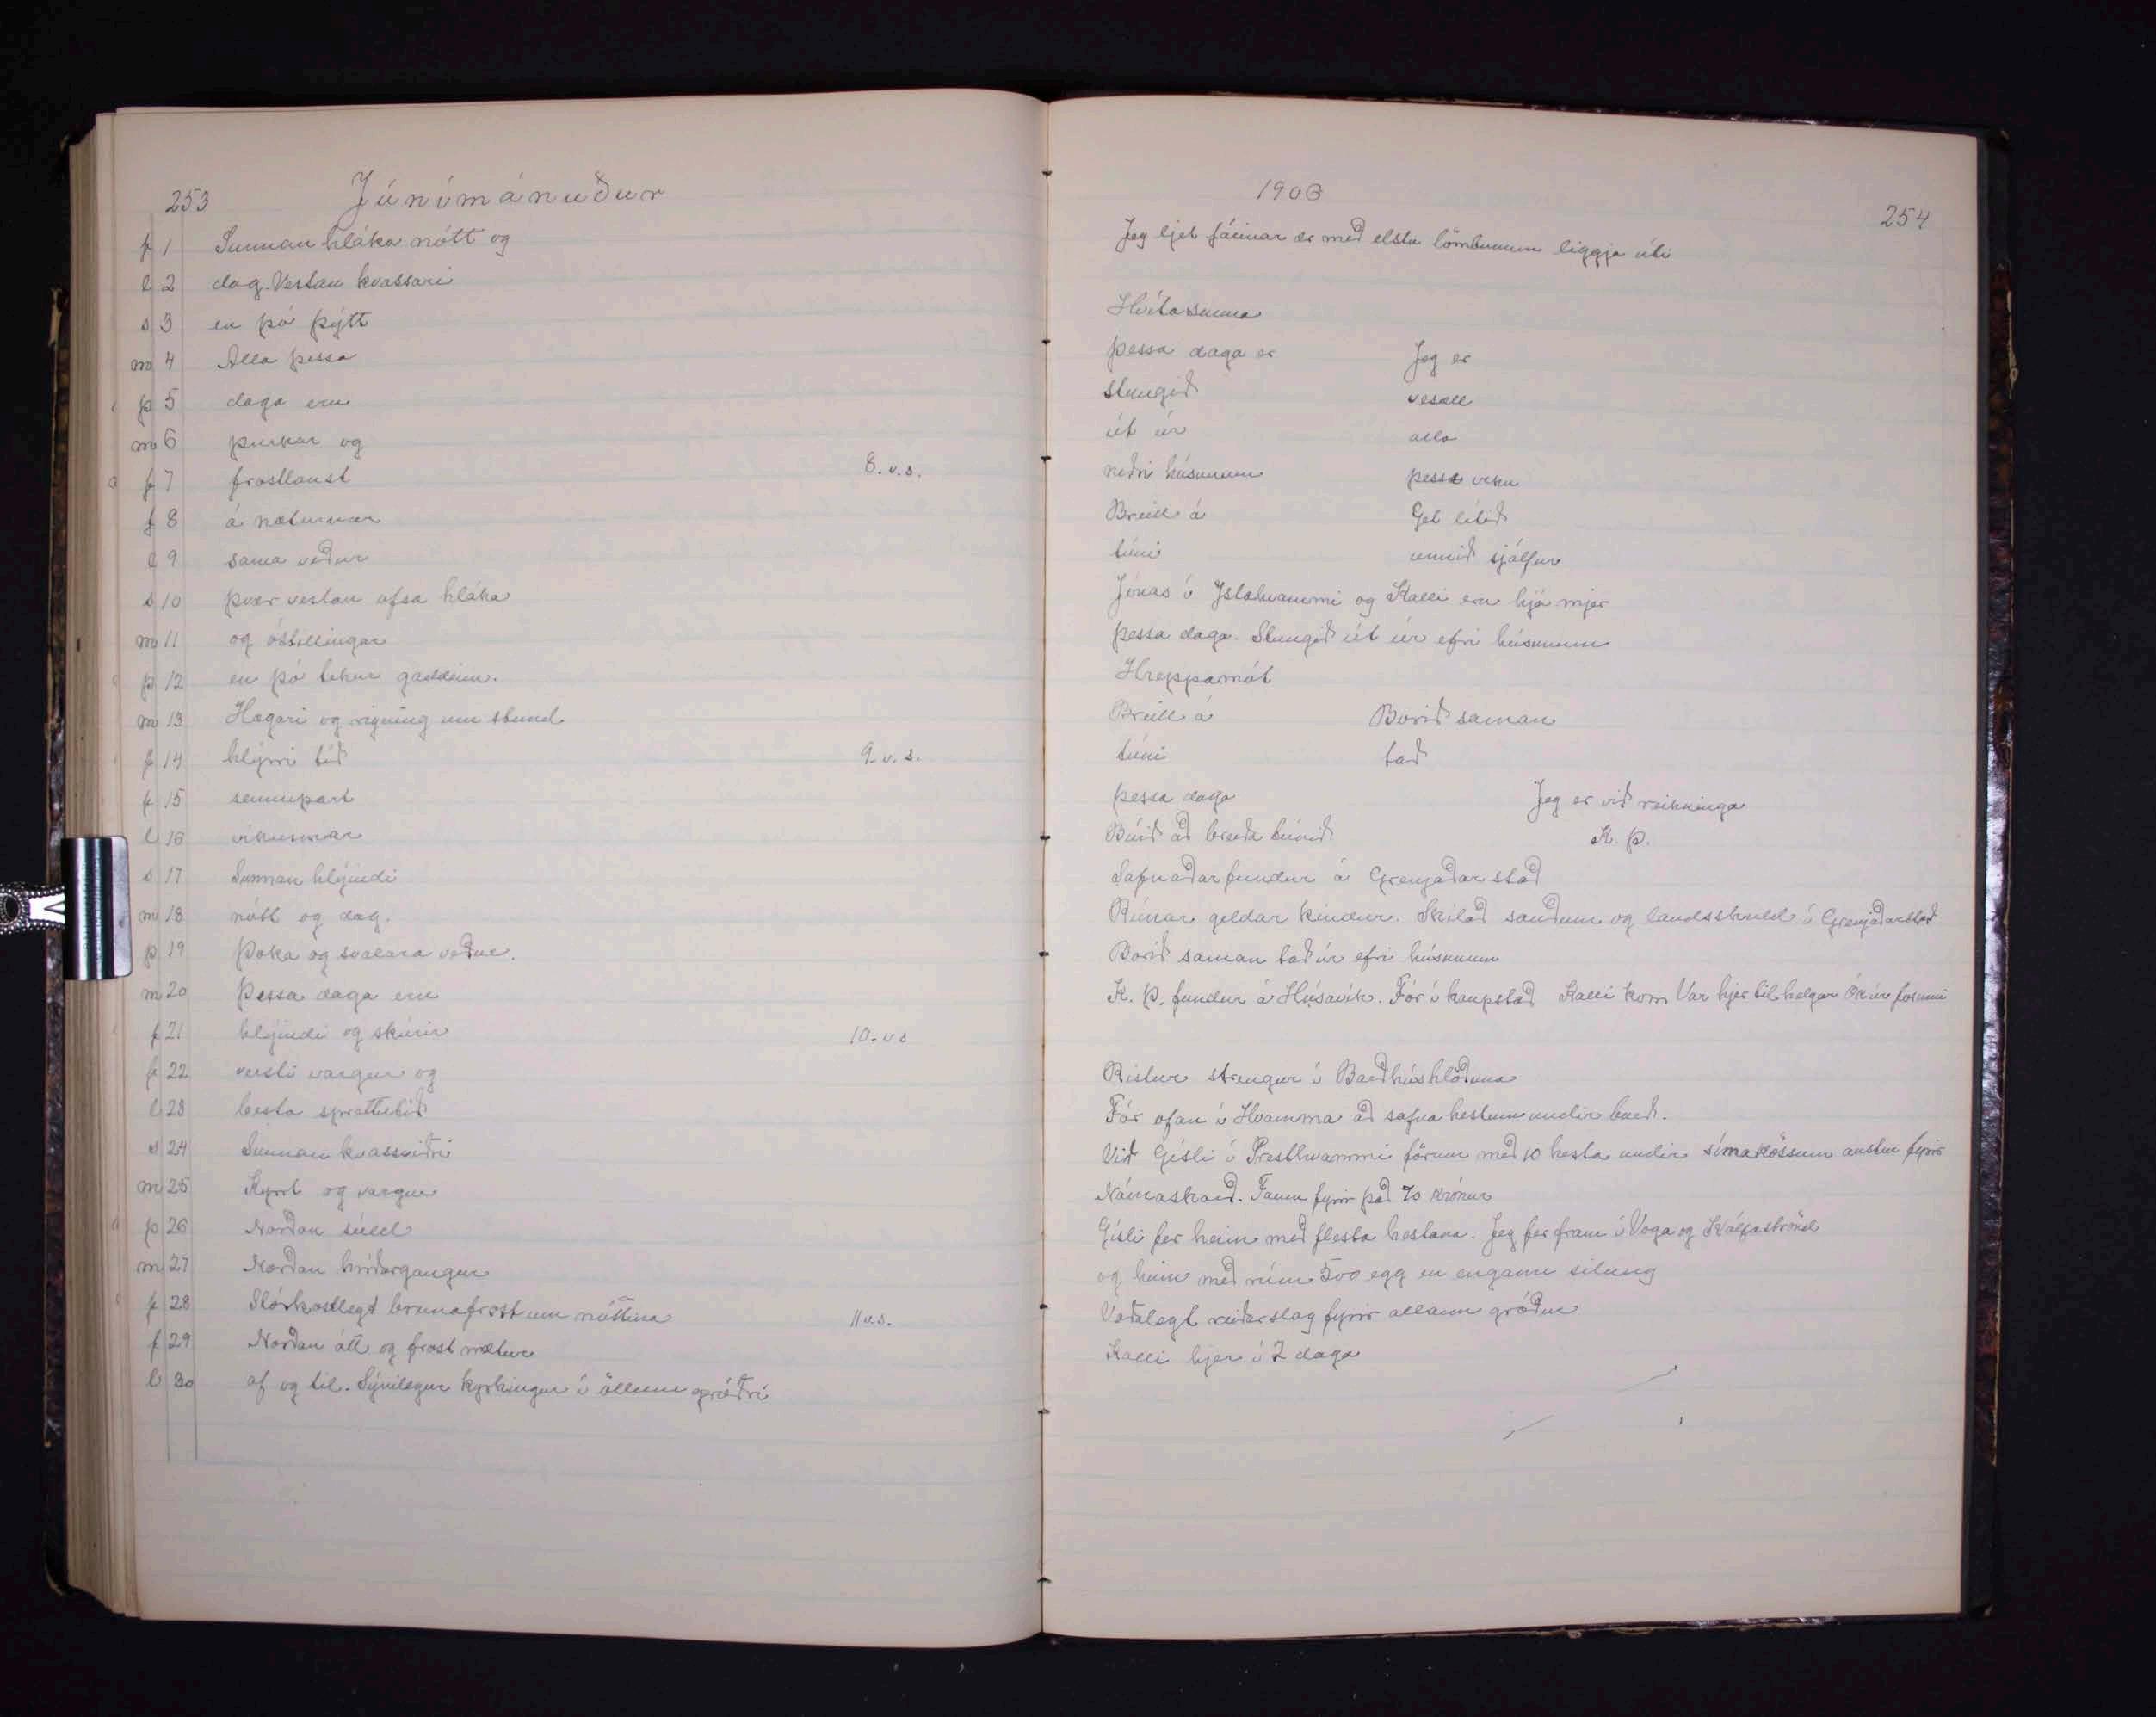 253 Júnímánuður
f 1 Sunnan hláka nótt og
l 2 dag. Vestan kvassari
s 3 en þó þýtt
m 4 Alla þessa
þ 5 daga eru
m 6 þurkar og
f 7 frostlaust 8. v. s.
f 8 á næturnar
l 9 sama veður
s 10 þver vestan ofsa hláka
m 11 og óstillingar
þ 12 en þó tekur gaddinn.
m 13 Hægari og rigning um stund
f 14 hlýrri tíð 9. v. s.
f 15 seinnipart
l 16 vikunnar
s 17 Sunnan hlýindi
m 18 nótt og dag.
þ 19 Þoka og svalara veður.
m 20 Þessa daga eru
f 21 hlýindi og skúrir 10. v s
f 22 versti vargur og
l 23 besta sprettutíð
s 24 Sunnan kvassviðri
m 25 Kyrt og vargur
þ 26 Norðan súld
m 27 Norðan hríðargangur
f 28 Stórkostlegt brunafrost um nóttina 11 v. s.
f 29 Norðan átt og frost nætur
l 30 af og til. Sýnilegur kyrkingur í öllum gróðri
1906 254
Jeg ljet fáeinar ær með elstu lömbunum liggja úti
Hvítasunna
þessa daga er Jeg er
stungið vesall
út úr alla
neðri húsunum þessa viku
Breitt á Get lítið
túni unnið sjálfur
Jónas í Ystahvammi og Kalli eru hjá mjer
þessa daga. Stungið út úr efri húsunum
Hreppamót
Breitt á Borið saman
túni tað
þessa daga Jeg er við reikninga
Búið að breiða túnið K. Þ.
Safnaðarfundur á Grenjaðarstað
Rúnar geldar kindur. Skilað sauðum og landsskuld í Grenjaðarstað
Borið saman tað úr efri húsunum
K. Þ. fundur á Húsavík. Fór í kaupstað Kalli kom Var hjer til helgar
Ristur strengur í Baðhúshlöðuna
Fór ofan í Hvamma að safna hestum undir burð.
Við Gísli í Presthvammi förum með 10 hesta undir símakössum austur fyrir
Námaskarð. Fáum fyrir það 70 krónur
Gísli fer heim með flesta hestana. Jeg fer fram í Voga og Kálfaströnd
og heim með rúm 500 egg en engann silung
Voðalegt reiðarslag fyrir allann gróður
Kalli hjer í 2 daga